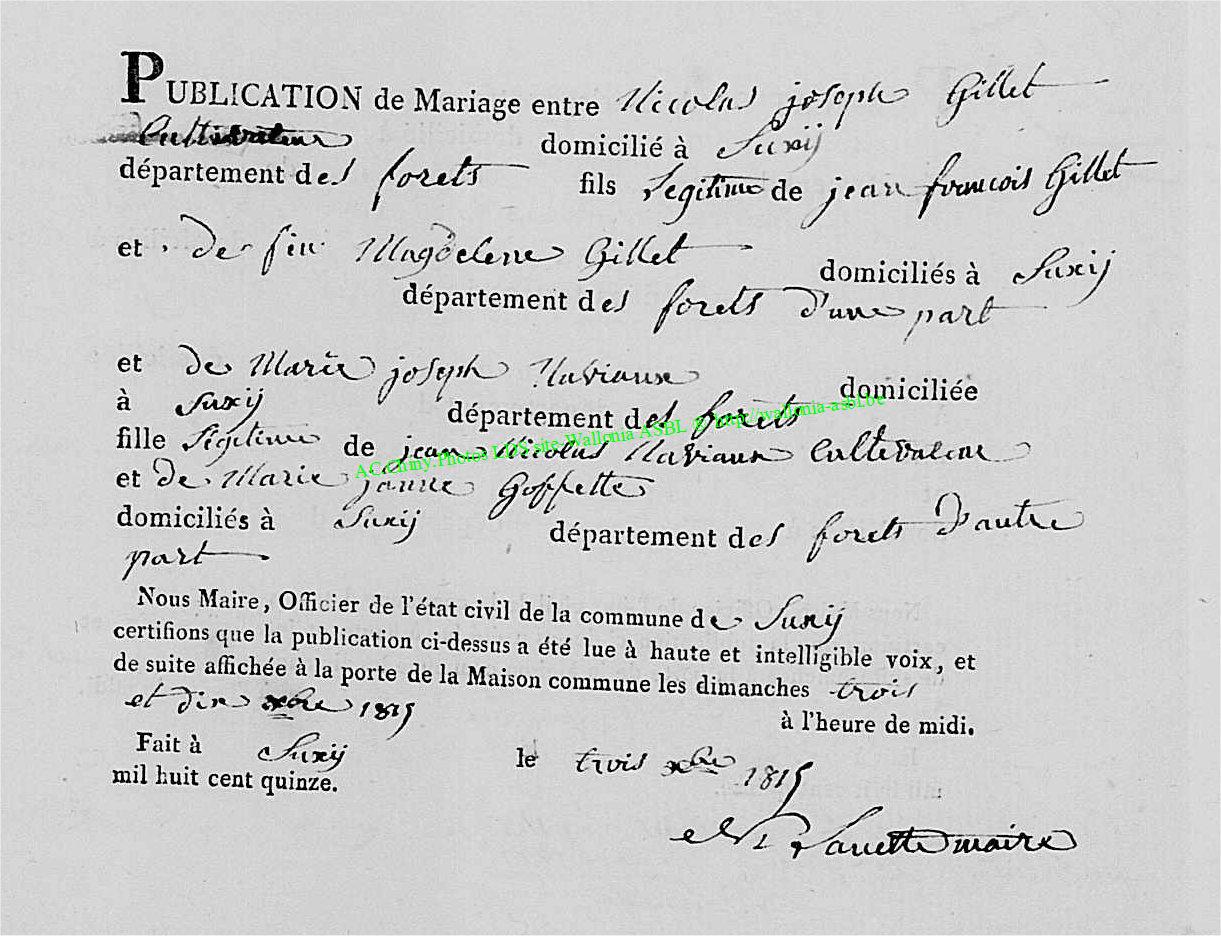 PUBLICATION de Mariage entre Nicolas joseph Gillet
Cultivateur domicilié à Suxÿ
département des forets fils Legitime de jean francois Gillet
et de feu Magdelene Gillet domiciliés à Suxÿ
département des forets d'une part
et de Marie joseph Naviaux domiciliée
à Suxÿ département des forets
fille Légitime de jean Nicolas Naviaux Cultivateur
et de Marie janne Goffette
domiciliés à Suxÿ département des forets D'autre
part
Nous Maire, Officier de l'état civil de la commune de Suxÿ
certifions que la publication ci-dessus a été lue à haute et intelligible voix, et
de suite affichée à la porte de la Maison commune les dimanches trois
et dix xbre 1815 à l'heure de midi.
Fait à Suxÿ le trois xbre 1815
mil huit cent quinze.
maire
AC.Chiny.Photos LDS site-Wallonia ASBL & http://wallonia-asbl.be